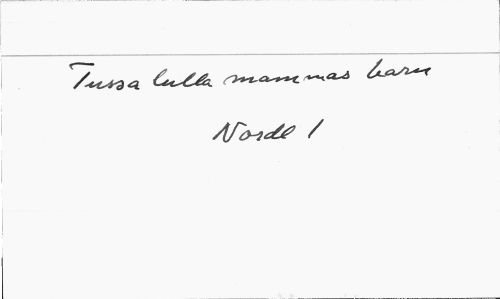 Tussa lulla mammas barn
Nordl 1